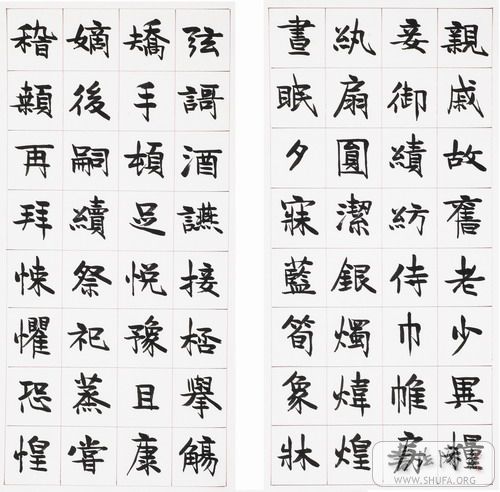 親戚故舊老少異糧
妾御績紡侍巾帷房
紈扇圓潔銀燭煒煌
晝眠夕寐藍筍象牀
弦謌酒讌接桮舉觴
矯手頓足悅豫且康
嫡後嗣續祭祀蒸嘗
稽顙再拜悚懼恐惶
WWW.SHUFA.ORG